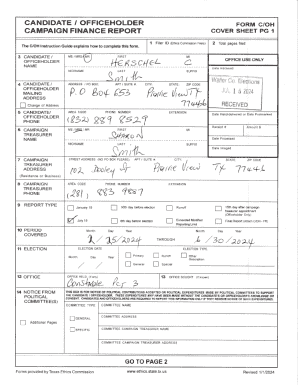 CANDIDATE / OFFICEHOLDER
CAMPAIGN FINANCE REPORT
FORM C/OH
COVER SHEET PG 1
The C/OH Instruction Guide explains how to complete this form.
1 Filer ID (Ethics Commission Filers)
2 Total pages filed:
3 CANDIDATE / OFFICEHOLDER NAME
MS / MRS / MR FIRST MI
HERSCHEL C
NICKNAME LAST SUFFIX
Smith
OFFICE USE ONLY
Date Received
JUL 1 6 2024
RECEIVED
4 CANDIDATE / OFFICEHOLDER MAILING ADDRESS
Change of Address
ADDRESS / PO BOX; APT / SUITE #; CITY; STATE; ZIP CODE
P.O Box 653 Prairie View TX
77446
5 CANDIDATE / OFFICEHOLDER PHONE
AREA CODE PHONE NUMBER EXTENSION
(832) 889 8529
Date Hand-delivered or Date Postmarked
6 CAMPAIGN TREASURER NAME
MS / MRS / MR FIRST MI
SHARON
NICKNAME LAST SUFFIX
Smith
Receipt # Amount $
Date Processed
Date Imaged
7 CAMPAIGN TREASURER ADDRESS
(Residence or Business)
STREET ADDRESS (NO PO BOX PLEASE); APT / SUITE #; CITY; STATE; ZIP CODE
Prairie View TX 77446
8 CAMPAIGN TREASURER PHONE
AREA CODE PHONE NUMBER EXTENSION
(281) 883 9887
9 REPORT TYPE
January 15
30th day before election
Runoff
15th day after campaign treasurer appointment (Officeholder Only)
July 15
8th day before election
Exceeded Modified Reporting Limit
Final Report (Attach C/OH - FR)
10 PERIOD COVERED
Month Day Year
THROUGH
Month Day Year
6 / 30 / 2024
11 ELECTION
ELECTION DATE
Month Day Year
ELECTION TYPE
Primary
Runoff
Other Description
General
Special
12 OFFICE
OFFICE HELD (if any)
Constable Pct 3
13 OFFICE SOUGHT (if known)
14 NOTICE FROM POLITICAL COMMITTEE(S)
Additional Pages
THIS BOX IS FOR NOTICE OF POLITICAL CONTRIBUTIONS ACCEPTED OR POLITICAL EXPENDITURES MADE BY POLITICAL COMMITTEES TO SUPPORT
COMMITTEE TYPE
GENERAL
SPECIFIC
COMMITTEE NAME
COMMITTEE ADDRESS
COMMITTEE CAMPAIGN TREASURER NAME
COMMITTEE CAMPAIGN TREASURER ADDRESS
GO TO PAGE 2
Forms provided by Texas Ethics Commission
www.ethics.state.tx.us
Revised 1/1/2024